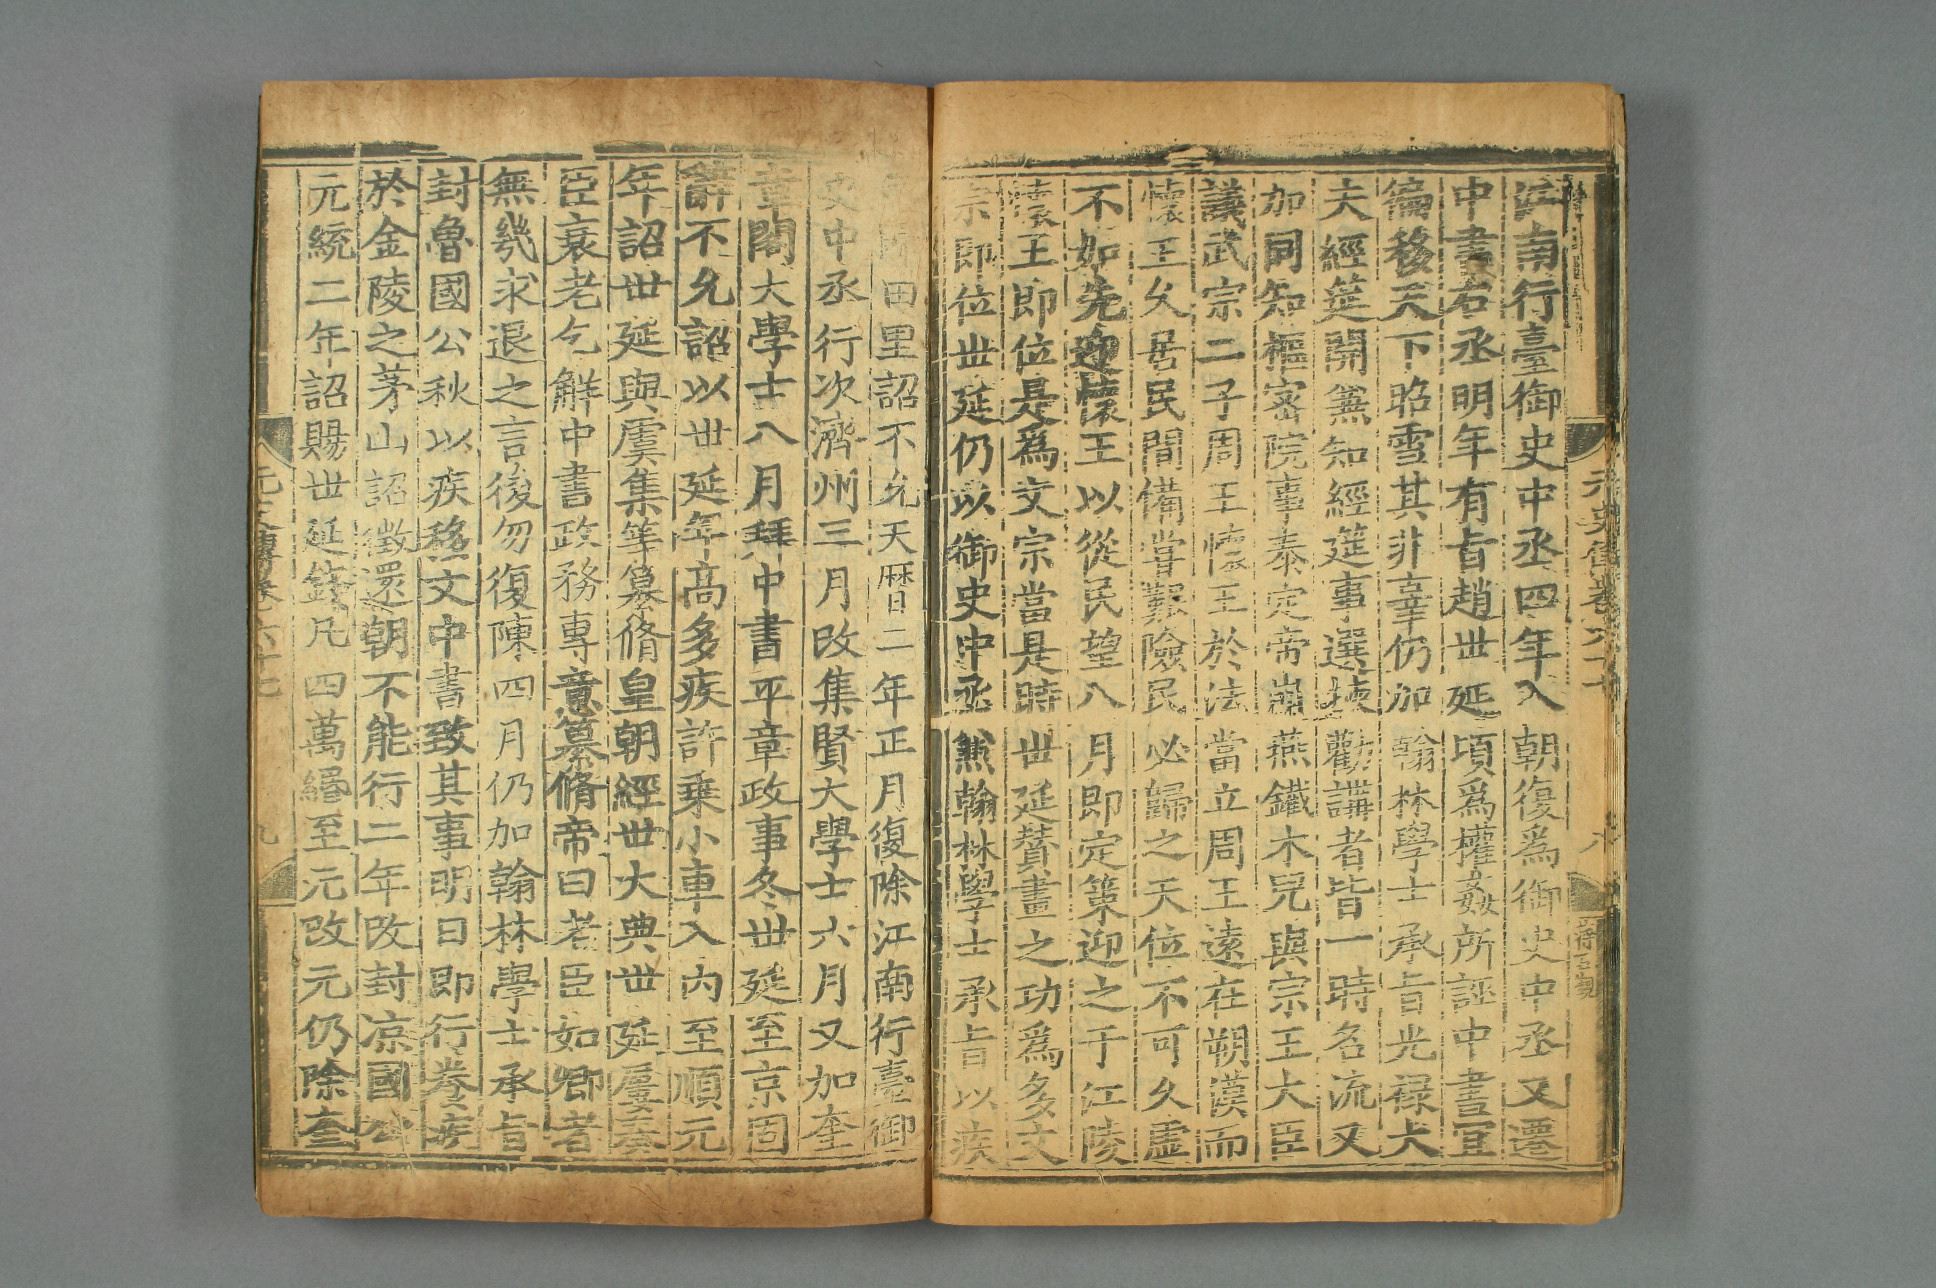 江南行臺御史中丞四年入朝復爲御史中丞又遷
中書右丞明年有旨趙世延頃爲權姦所誣中書宜
徧移天下昭雪其非辜仍加翰林學士承旨光祿大
夫經筵開兼知經筵事選揀勸講者皆一時名流又
加同知樞密院事泰定帝崩燕鐵木兒與宗王大臣
議武宗二子周王懷王於法當立周王遠在朔漠而
懷王久居民間備嘗艱險民必歸之天位不可久虛
不如先迎懷王以從民望八月即定策迎之于江陵
懷王即位是爲文宗當是時世延贊畫之功爲多文
宗即位世延仍以御史中丞兼翰林學士承旨以疾
元史傳卷六十七
八
田里詔不允天曆二年正月復除江南行臺御
史中丞行次濟州三月改集賢大學士六月又加奎
章閣大學士八月拜中書平章政事冬世延至京固
辭不允詔以世延年高多疾許乗小車入內至順元
年詔世延與虞集等纂脩皇朝經世大典世延屢奏
臣衰老乞解中書政務專意纂脩帝曰老臣如卿者
無幾求退之言後勿復陳四月仍加翰林學士承旨
封魯國公秋以疾移文中書致其事明日即行養疾
於金陵之茅山詔徵還朝不能行二年改封凉國公
元統二年詔賜世延錢凡四萬緡至元改元仍除奎
元史傳卷六十七
九